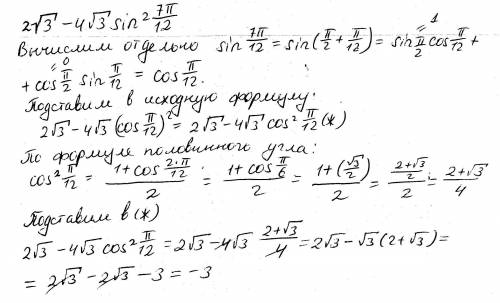 2√3 - 4√3 sin² 7π/12
Вычислим отдельно sin 7π/12 = sin(π/2 + π/12) = sin π/2 (=1) cos π/12 +
+ cos π/2 (=0) sin π/12 = cos π/12.
Подставим в исходную формулу:
2√3 - 4√3 (cos π/12)² = 2√3 - 4√3 cos² π/12 (*)
По формуле половинного угла:
cos² π/12 = (1 + cos 2·π/12)/2 = (1 + cos π/6)/2 = (1 + (√3/2))/2 = ((2+√3)/2)/2 = (2+√3)/4
Подставим в (*)
2√3 - 4√3 cos² π/12 = 2√3 - 4√3 (2+√3)/4 = 2√3 - √3 (2+√3) =
= 2√3 - 2√3 - 3 = -3